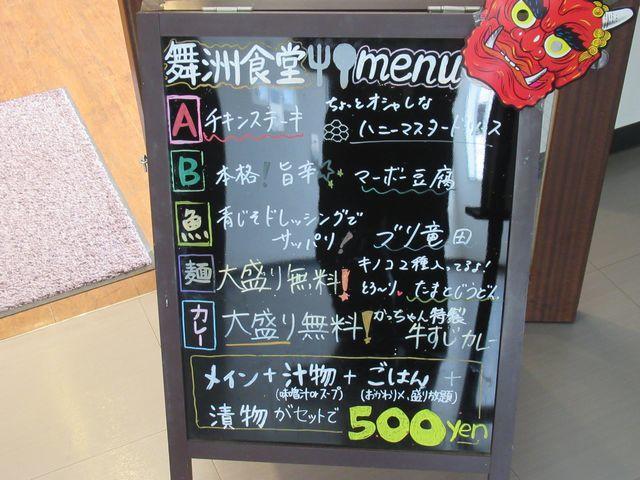 舞洲食堂 menu
A チキンステーキ ちょっとオシャレな
ハニーマスタードソース
B 本格！旨辛 マーボー豆腐
魚 青じそドレッシングで
サッパリ！ ブリ竜田
麺 大盛り無料！ キノコ2種入ってるよ！
とろ〜り たまとじうどん
カレー 大盛り無料！ かっちゃん特製
牛すじカレー
メイン+汁物+ごはん+
(味噌汁orスープ) (おかわり×、盛り放題)
漬物がセットで 500yen